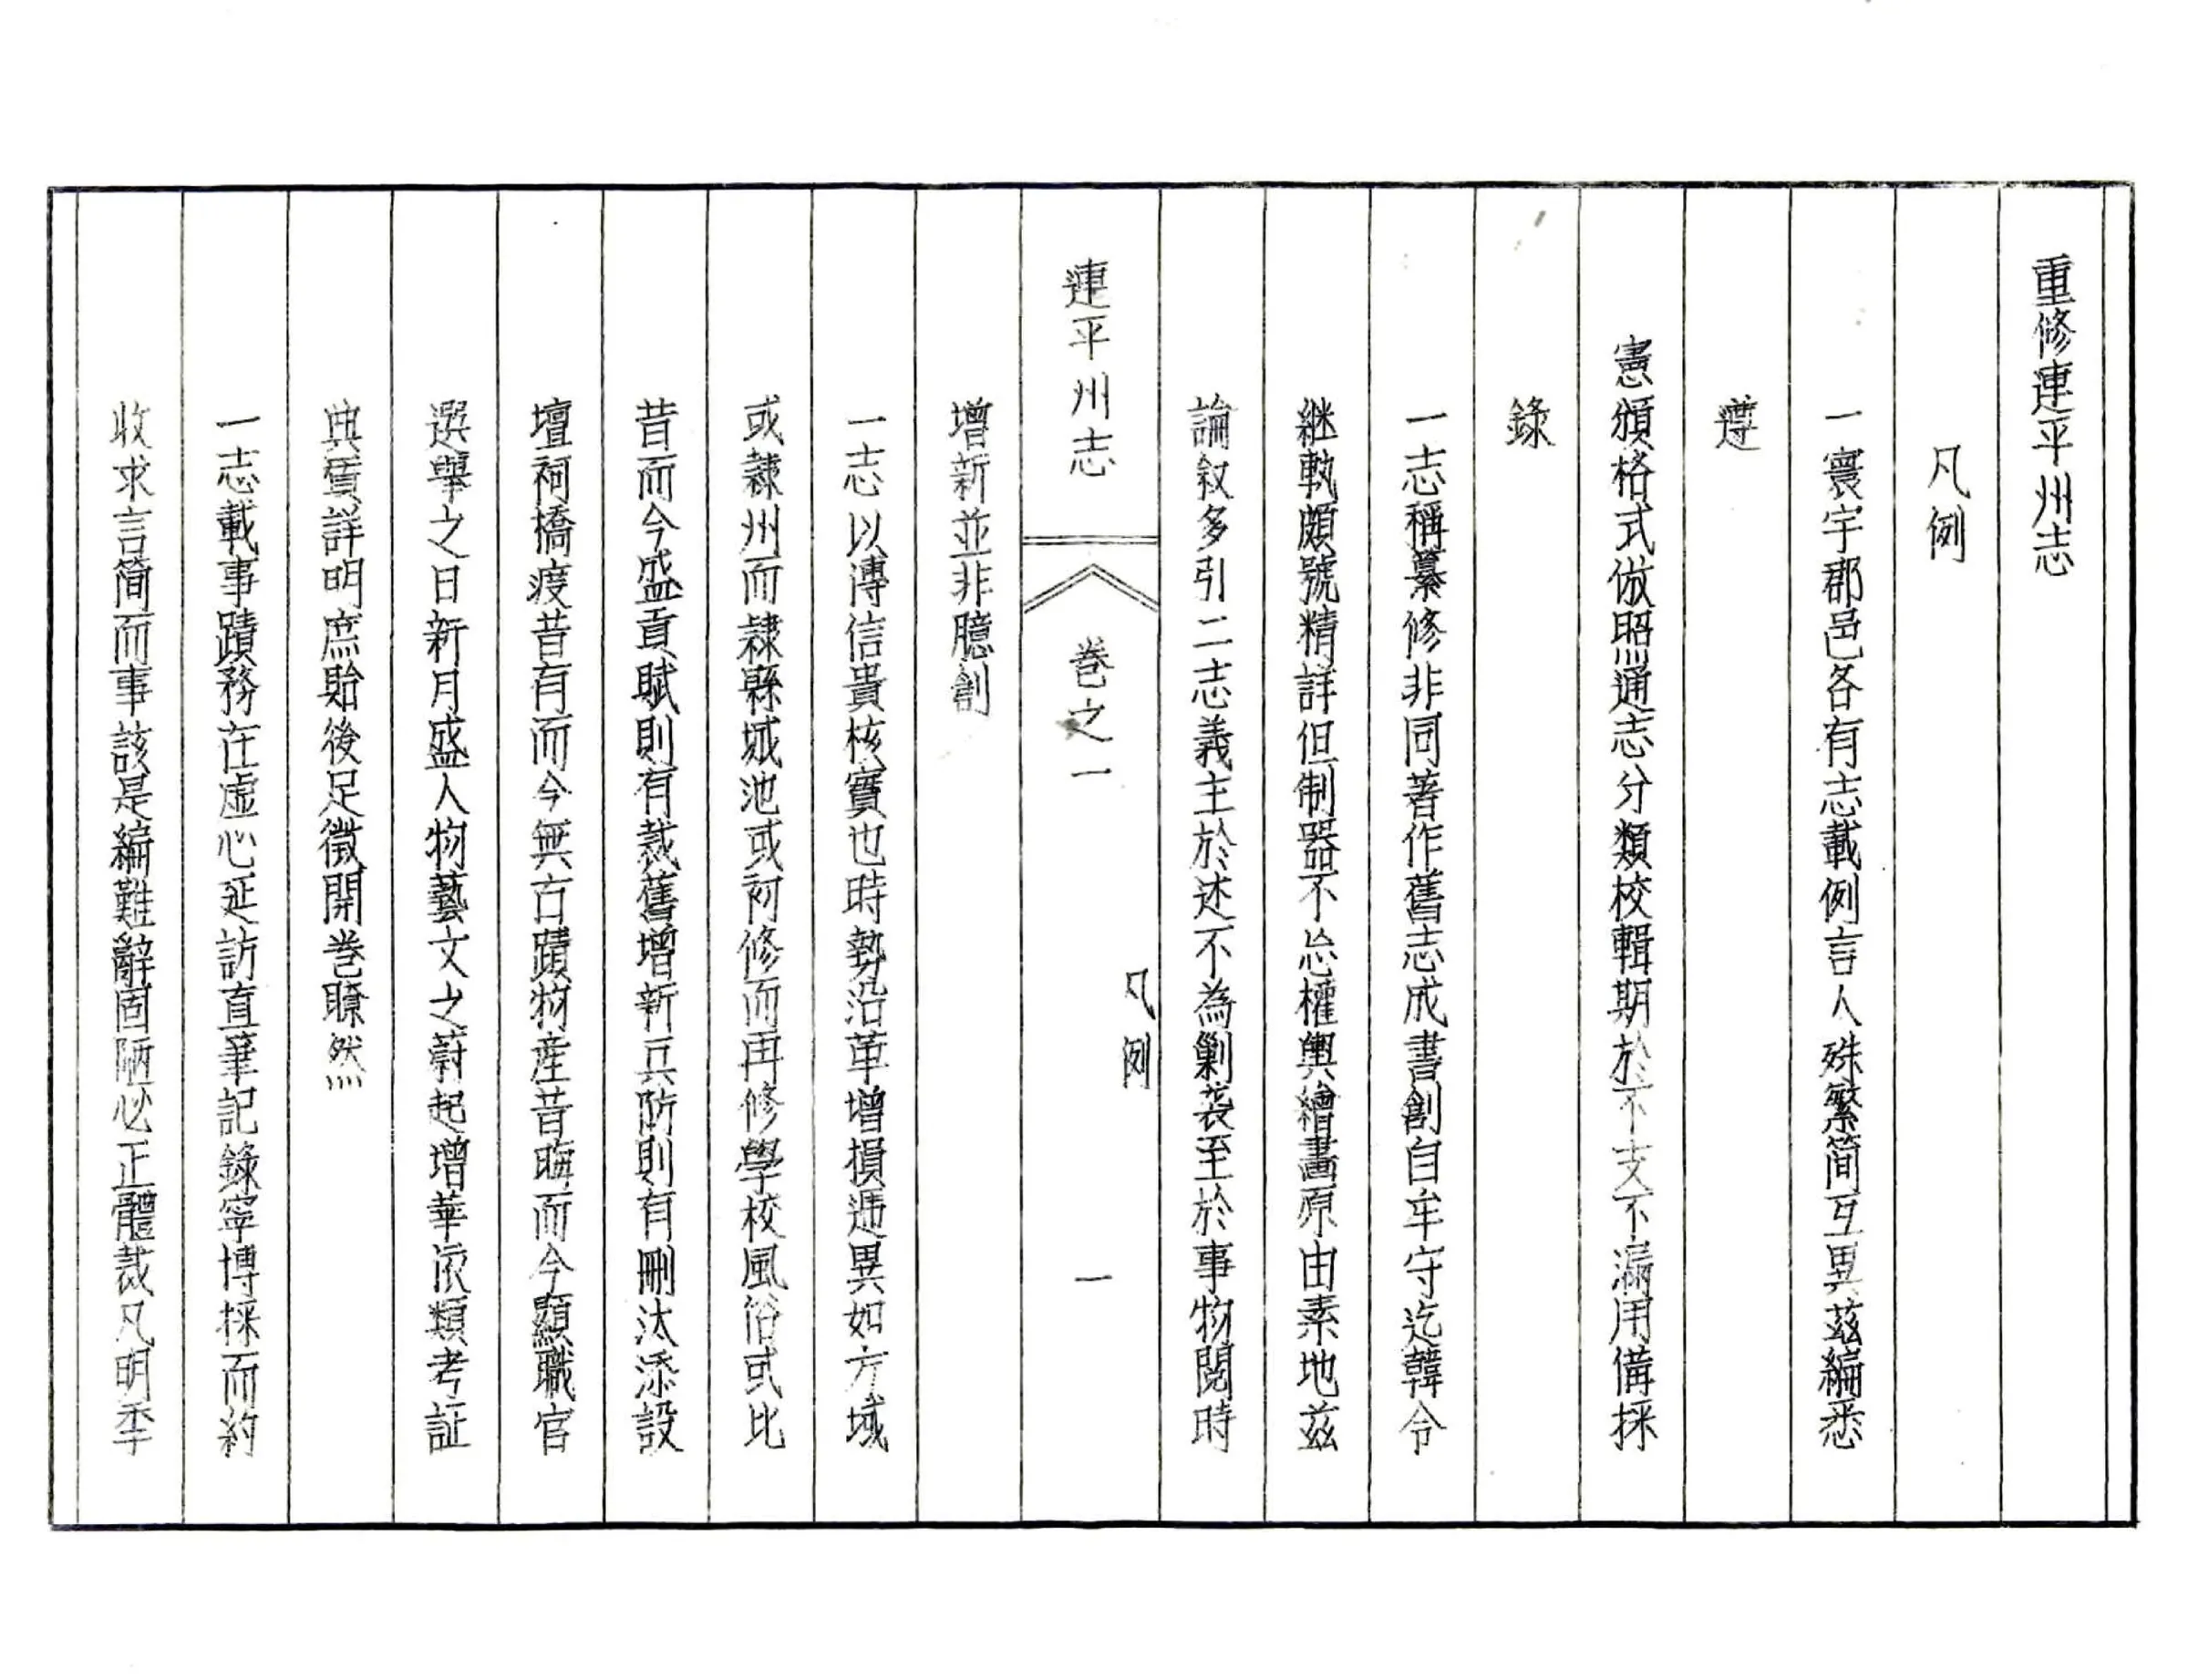 重修連平州志
凡例
一寰宇郡邑各有志載例言人殊繁简互異茲編悉
遵
憲頒格式倣照通志分類校輯期於不支不漏用備採
錄
一志稱纂修非同著作舊志成書創自牟守迄韓令
継執頗號精詳但制器不忘權輿繪畫原由素地茲
論叙多引二志義主於述不為剿襲至於事物閱時
連平州志 卷之一 凡例 一
增新並非臆創
一志以傳信貴核實也時勢沿革增損遞異如方域
或隸州而隸縣城池或初修而再修學校風俗或比
昔而今盛貢賦則有裁舊增新兵防則有刪汰添設
壇祠橋渡昔有而今無古蹟物産昔晦而今顯職官
選舉之日新月盛人物藝文之蔚起增華依類考証
典實詳明庶貽後足徵開卷瞭然
一志載事蹟務在虛心延訪直筆記錄寧博採而約
收求言简而事該是編難辭固陋必正體裁凡明季